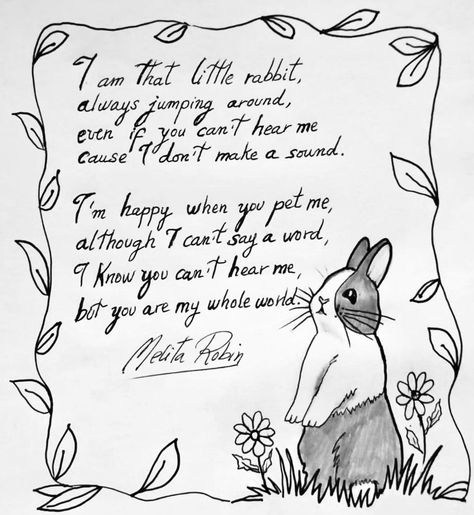 I am that little rabbit,
always jumping around,
even if you can't hear me
cause I don't make a sound.
I'm happy when you pet me,
although I can't say a word,
I know you can't hear me,
but you are my whole world.
Melita Robin